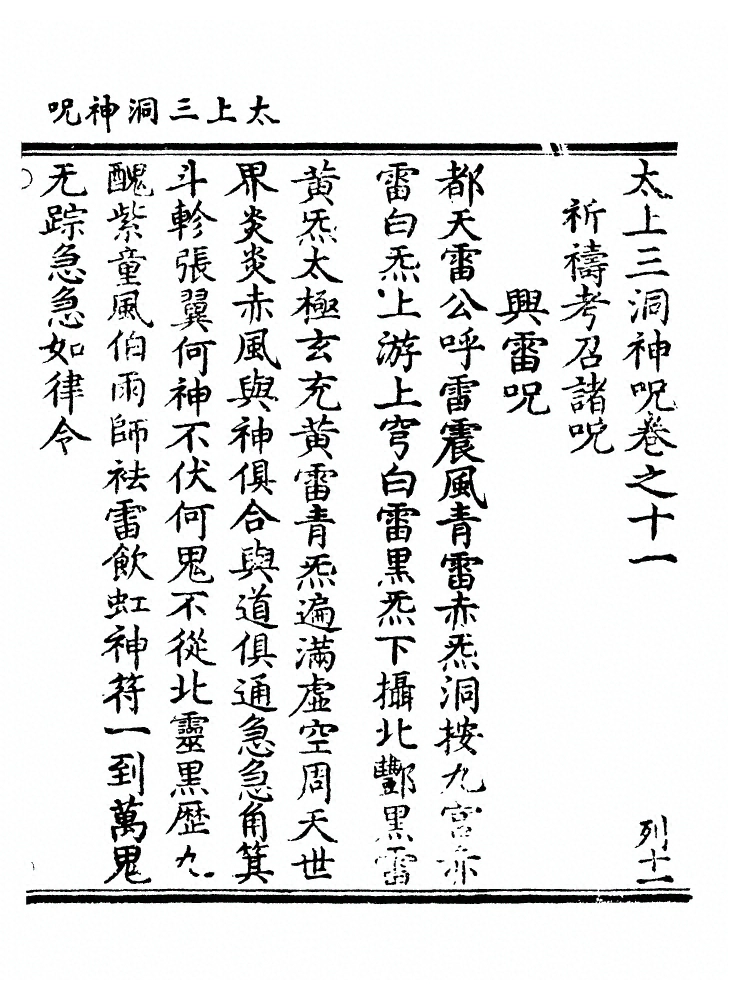 太上三洞神呪
太上三洞神呪卷之十一
列十一
祈禱考召諸呪
興雷呪
都天雷公呼雷震風青雷赤炁洞按九宮赤
雷白炁上游上穹白雷黑炁下攝北酆黑雷
黃炁太極玄充黃雷青炁遍滿虛空周天世
界炎炎赤風與神俱合與道俱通急急角箕
斗軫張翼何神不伏何鬼不從北靈黑歷九
醜紫童風伯雨師袪雷飲虹神符一到萬鬼
无踪急急如律令